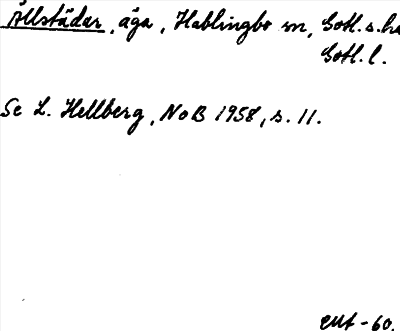 Ållstädar, äga, Hablingbo sn, Gotl. s. hd
Gotl. l.
Se L. Hellberg, NoB 1958, s. 11.
-60.